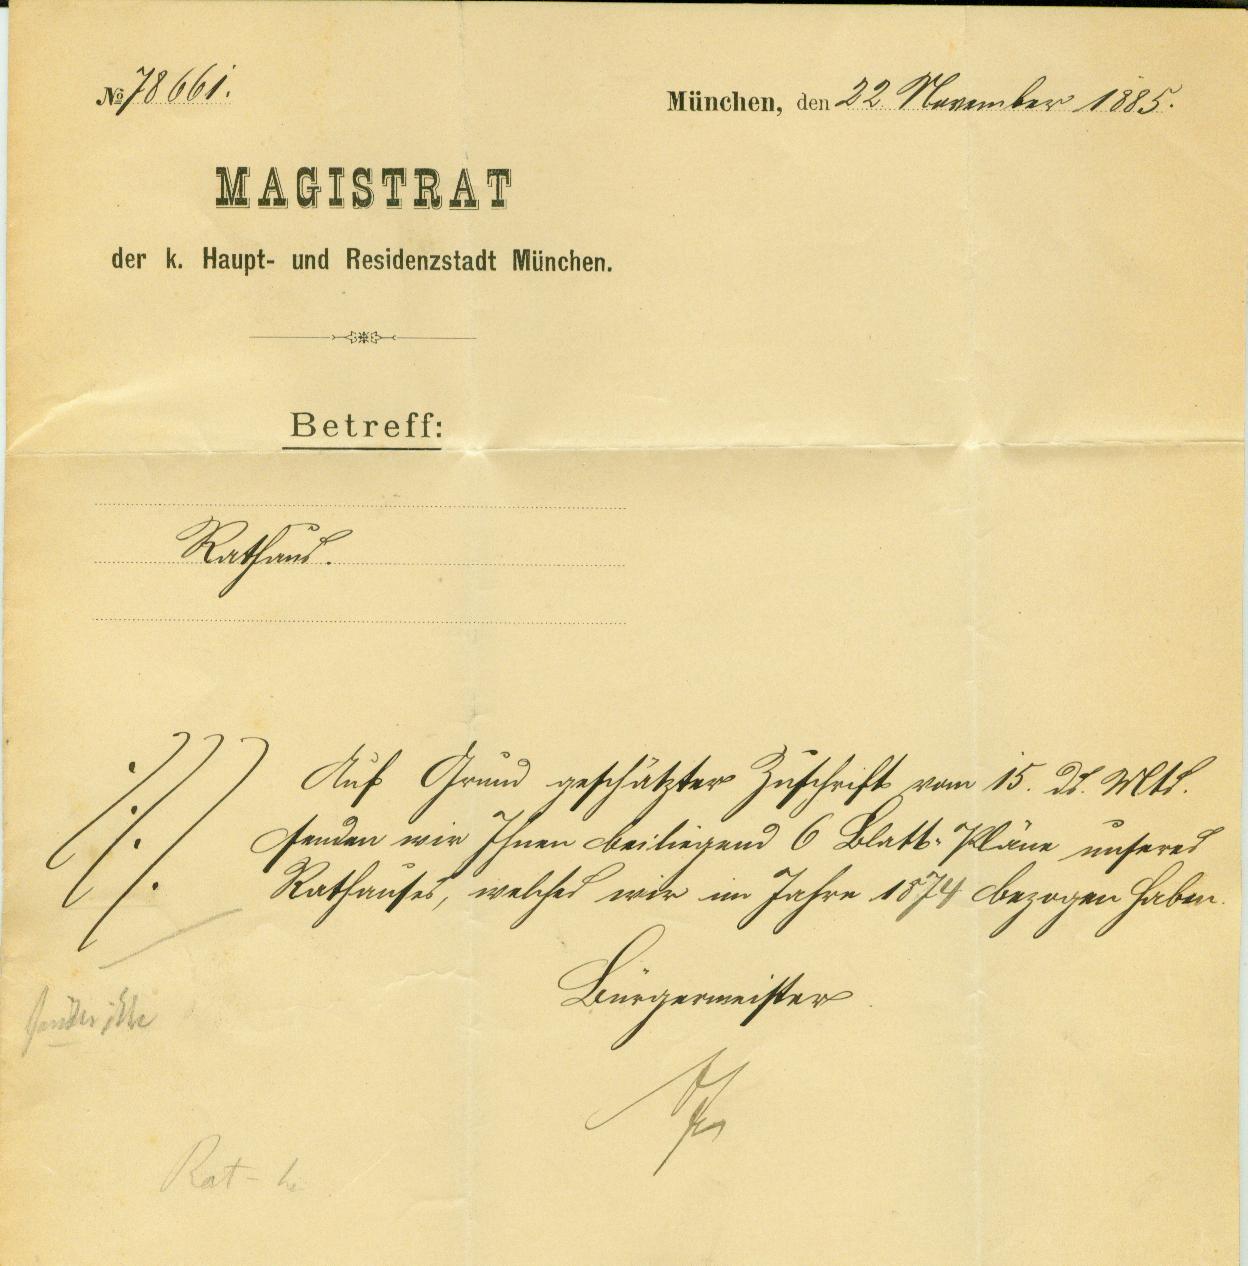 № 78661.
München, den 22 November 1885.
MAGISTRAT
der k. Haupt- und Residenzstadt München.
Betreff:
Rathaus.
Auf Grund geschätzter Zuschrift vom 15. ds. Mts.
senden wir Ihnen beiliegend 6 Blatt-Pläne unseres
Rathauses, welches wir im Jahre 1874 bezogen haben.
Bürgermeister
Rat-